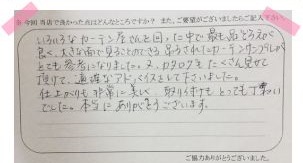 ※ 今回 当店で良かった点はどんなところですか? また、ご要望がございましたらご記入下さい。
いろいろなカーテン屋さんを回った中で最も品ぞろえが
良く、大きな面で見ることのできる吊るされたカーテンサンプルが
とても参考になりました。又、カタログもたくさん見せて
頂けて、適確なアドバイスをして下さいました。
仕上がりも非常に美しく、取り付けもとっても丁寧
でした。本当にありがとうございます。
ご協力ありがとうございました。